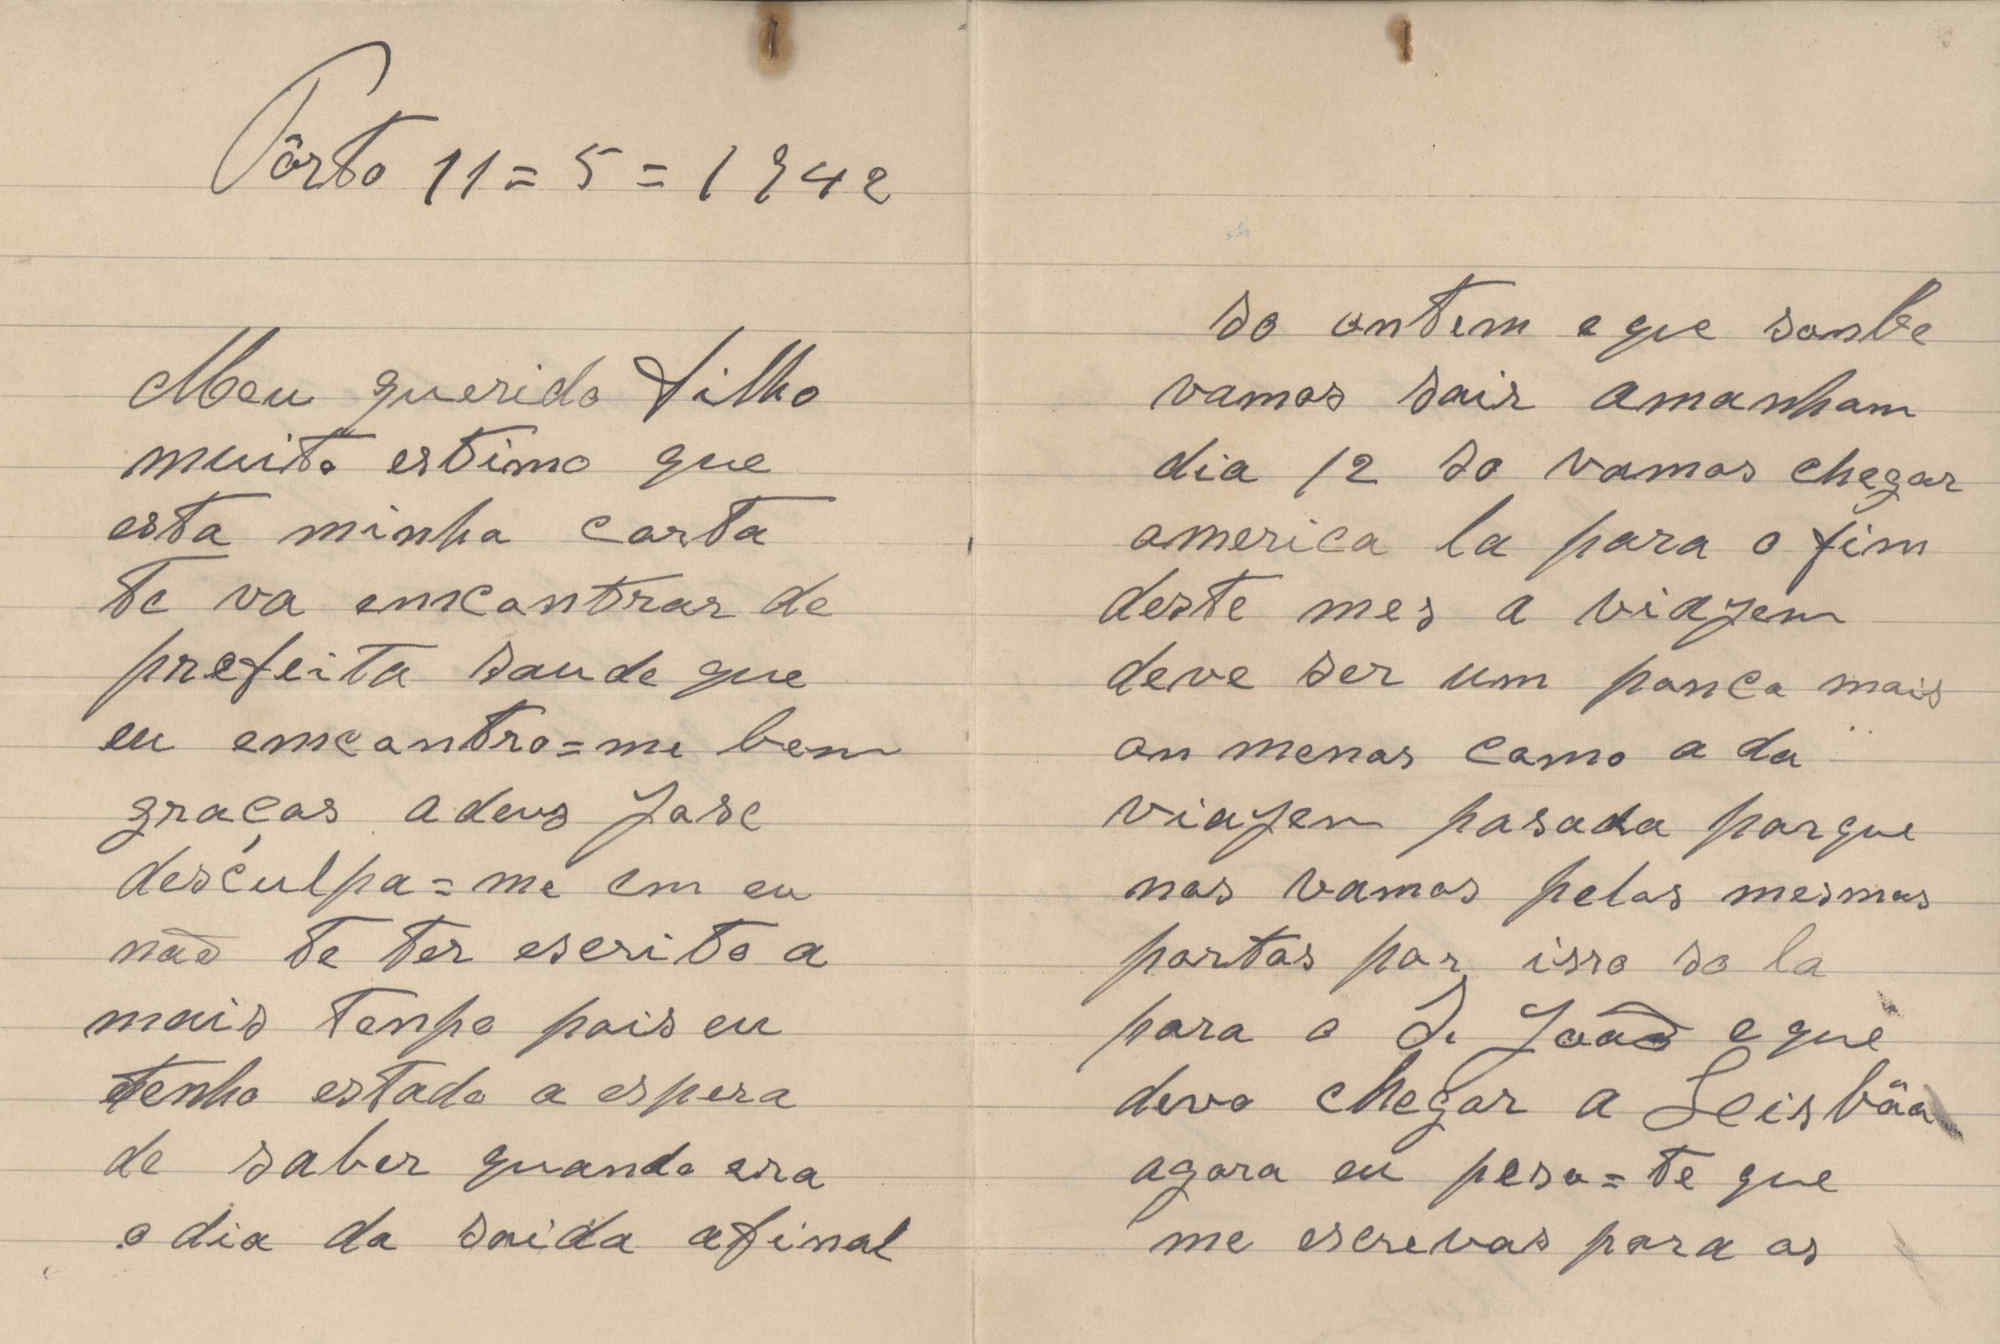 Pôrto 11=5=1942
Meu querido filho
muito estimo que
esta minha carta
te va emcontrar de
prefeita saude que
eu emcontro=me bem
graças adeus Jose
desculpa=me em eu
não te ter escrito a
mais tenpo pois eu
tenho estado a espera
de saber quando era
o dia da saida afinal
so ontem e que soube
vamos sair amanham
dia 12 so vamos chegar
america la para o fim
deste mes a viajem
deve ser um pouco mais
ou menos como a da
viajem pasada porque
nos vamos pelos mesmos
portos por isso so la
para o S. João e que
devo chegar a Leisbôa
agora eu peso=te que
me escrevas para os